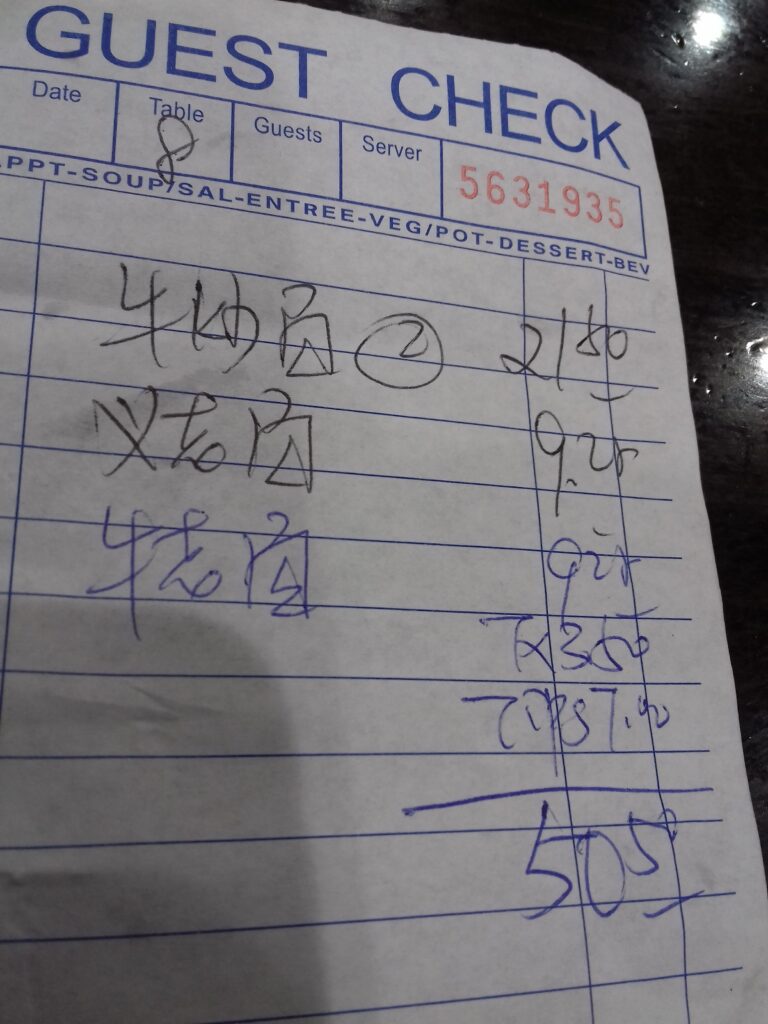 GUEST CHECK
Date Table Guests Server
8 5631935
APPT-SOUP/SAL-ENTREE-VEG/POT-DESSERT-BEV
牛炒 ② 21 50
9.25
牛 9 25
Tx 3 50
T.P $7.00
50 50